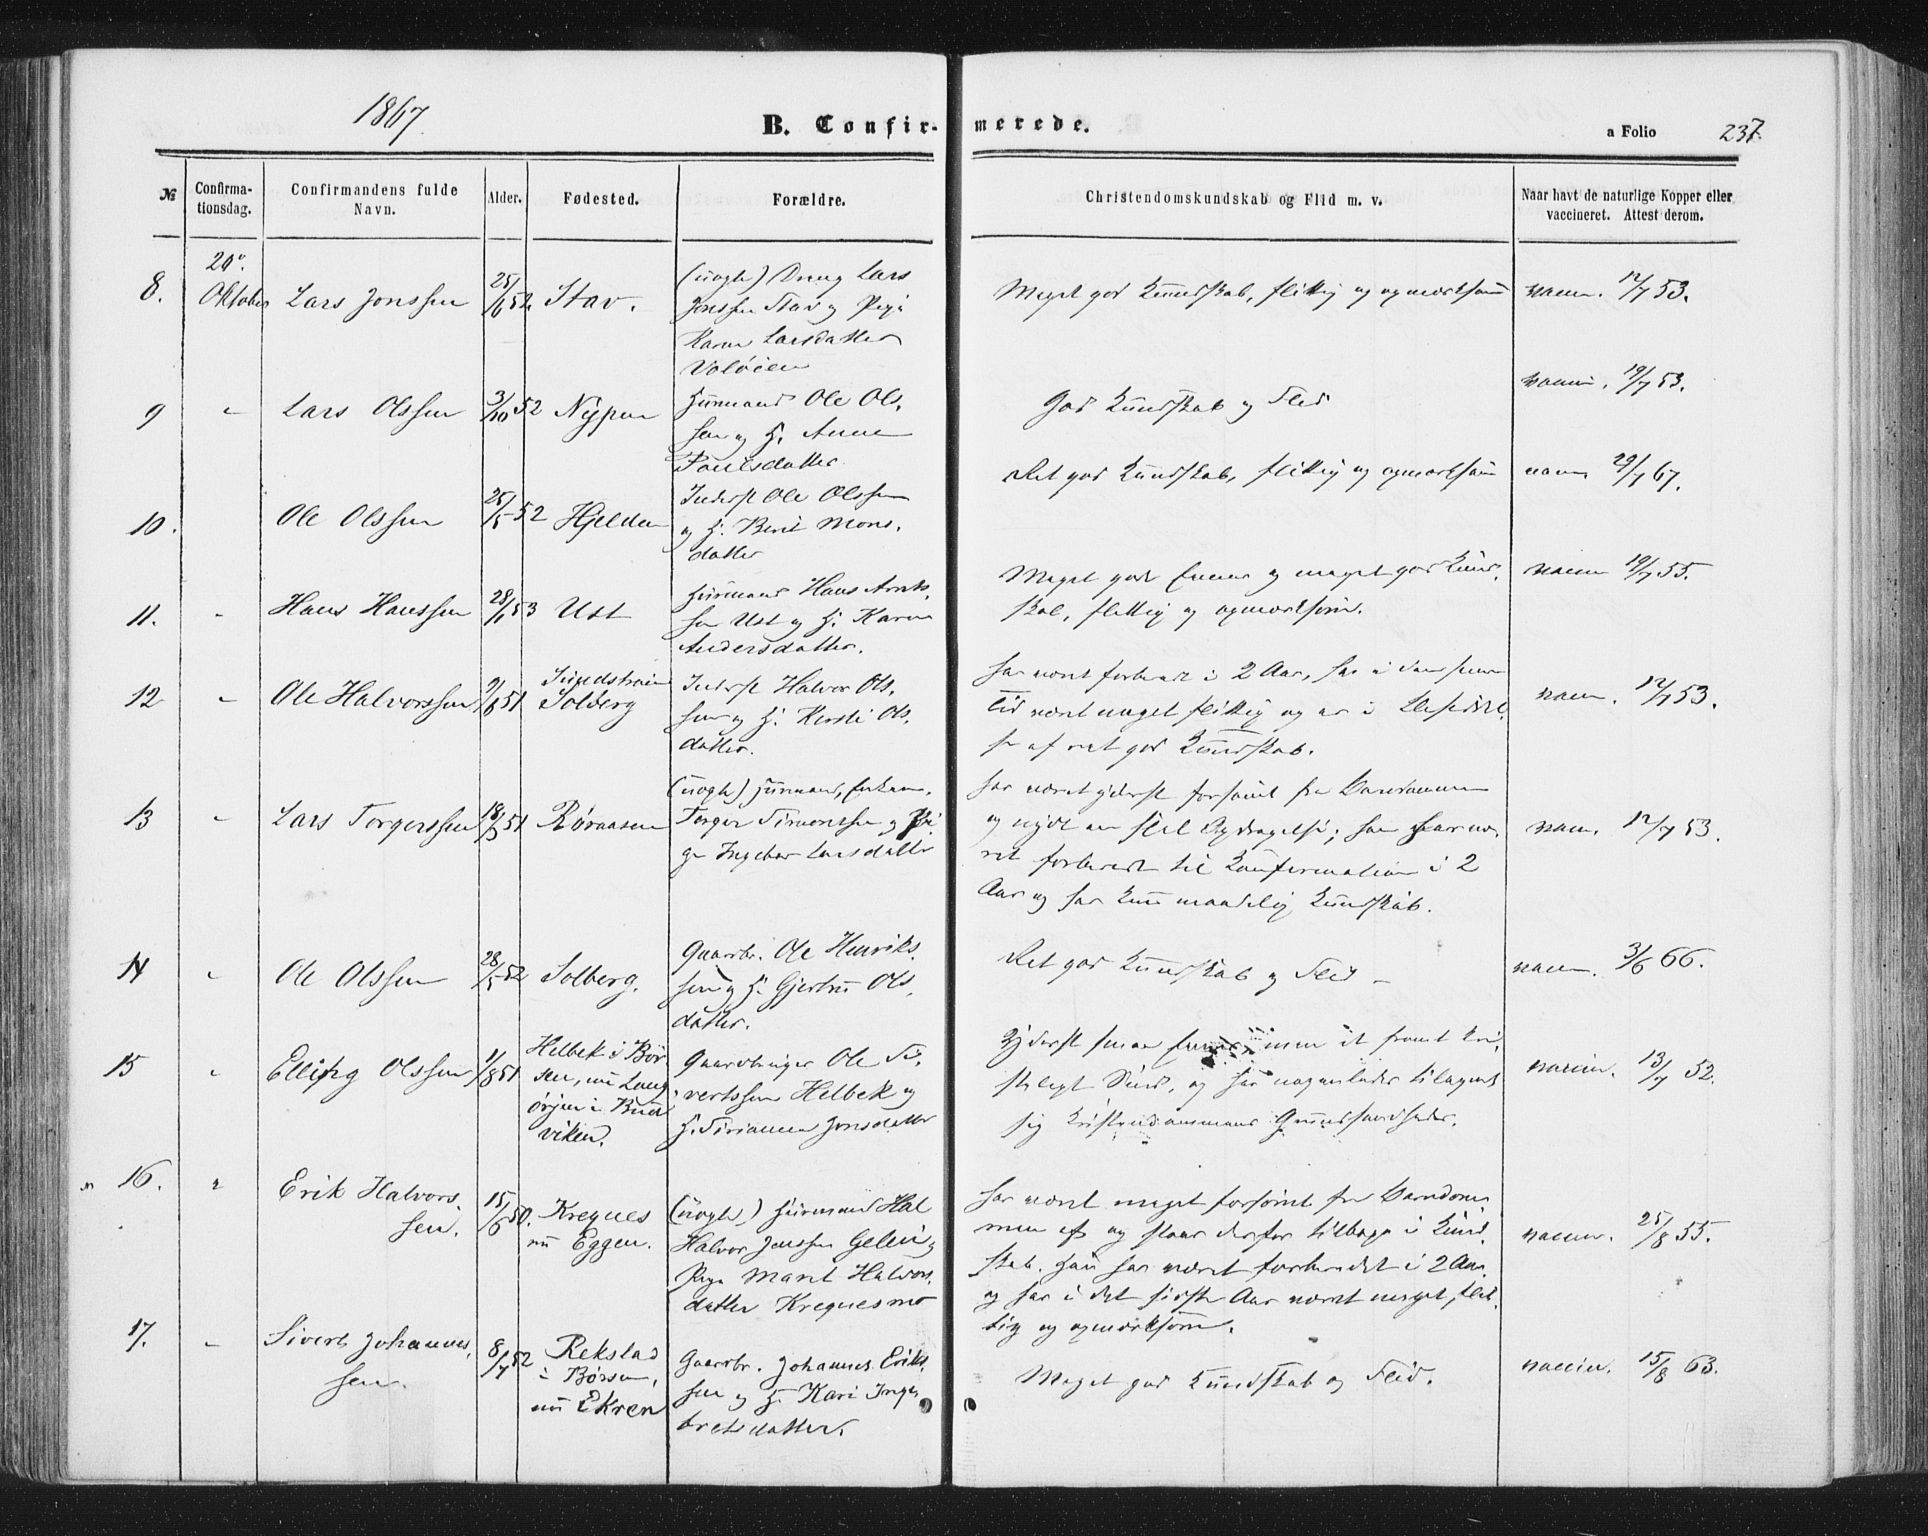 1867.
B. Confir-merede.
a Folio 237.
№
Confirma-
tionsdag.
Confirmandens fulde
Navn.
Alder.
Fødested.
Forældre.
Christendomskundskab og Flid m. v.
Naar havt de naturlige Kopper eller
vaccineret. Attest derom.
8.
20de
Oktober
Lars Jonssen
25/6 52
Stav.
(uægte) Dreng Lars
Jonssen Stav og Pige
Karen Larsdatter
Voløien
Meget god Kundskab, flittig og opmærksom
vaccin. 12/7 53.
9
"
Lars Olssen
3/10 52
Nypen
Husmand Ole Ols-
sen og H. Anne
Paulsdatter
God Kundskab og Flid
vaccin. 19/7 53.
10.
Ole Olssen
25/5 52
Hjelden
Inderst Ole Olssen
og H. Berit Mons-
datter
Ret god Kundskab, flittig og opmærksom
vaccin 29/7 67.
11.
"
Hans Hanssen
28/1 53
Ust
Husmand Hans Arnts-
sen Ust og H. Karen
Andersdatter.
Meget gode Evner og meget god Kund-
skab, flittig og opmærksom.
vaccin 19/7 55.
12
"
Ole Halvorssen
9/6 51
Solberg
Inderst Halvor Ols-
sen og H. Kirsti Ols-
datter.
Har været forberedt i 2 Aar, har i den senere
Tid været meget flittig og er i Besiddel-
se af ret god Kundskab.
vaccin. 12/7 53.
13
"
Lars Torgerssen
18/3 51
Røraasen
(uægte) Husmand, Enkem.
Torger Simonssen og Pi-
ge Ingebor Larsdatter
Har været yderst forsømt fra Barndommen
og nydt en slet Opdragelse; han har væ-
ret forberedt til Konfirmation i 2
Aar og har kun maadelig Kundskab.
vaccin. 12/7 53.
14
"
Ole Olssen
28/5 52
Solberg.
Gaardbr. Ole Henriks-
sen og H. Gjertru Ols-
datter.
Ret god Kundskab og Flid
vaccin. 3/6 66.
15
"
Elling Olssen
1/8 51
Helbek i Bør-
sen, nu Lang-
ørjen i Bud-
viken.
Gaardbruger Ole Si-
vertssen Helbek og
H. Siriannen Jonsdatter
Yderst smaa Evner men et fromt kri-
steligt Sind, og har nogenledes tilegnet
sig Kristendommens Grundsandheder.
vaccin. 13/7 52.
16.
"
Erik Halvors-
sen.
15/6 50.
Kregnes
nu Eggen.
(uægte) Husmand Hal
Halvor Jenssen Gelein og
Pige Marit Halvors-
datter Kregnesmo
Har været meget forsømt fra Barndom-
men af og staar derfor tilbage i Kund-
skab. Han har været forberedet i 2 Aar,
og har i det sidste Aar været meget flit-
tig og opmærksom.
vaccin. 25/8 55.
17.
"
Sivert Johannes-
sen.
8/7 52
Rekstad
i Børsen,
nu Ekren
Gaardbr. Johannes Eriks-
sen og H. Kari Inge-
bretsdatter.
Meget god Kundskab og Flid.
vaccin. 15/8 63.